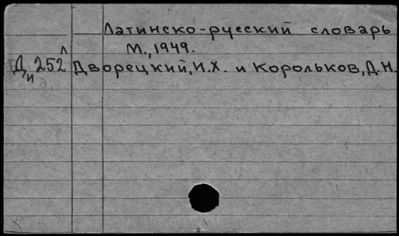 Латинско-русский словарь
М., 1949.
Л
Д 252 Дворецкий, И.Х. и Корольков, Д.Н.
И